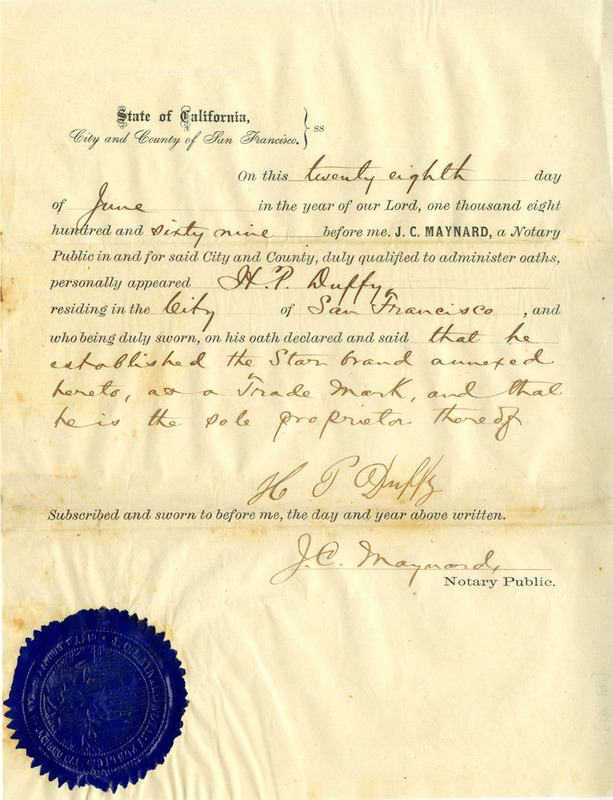 State of California,
City and County of San Francisco. } ss
On this twenty eighth day
of June in the year of our Lord, one thousand eight
hundred and sixty nine before me. J. C. MAYNARD, a Notary
Public in and for said City and County, duly qualified to administer oaths,
personally appeared H. P. Duffy
residing in the City of San Francisco, and
who being duly sworn, on his oath declared and said that he
established the Star brand annexed
hereto, as a Trade Mark, and that
he is the sole proprietor thereof
H P Duffy
Subscribed and sworn to before me, the day and year above written.
J. C. Maynard,
Notary Public.